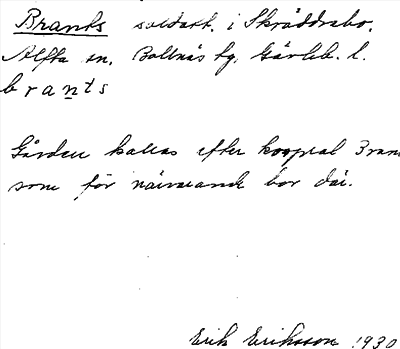 Brants soldatt. i Skräddrabo.
Alfta sn. Bollnäs tg. Gävleb. l.
brants
Gården kallas efter korpral Bran
som för närvarande bor där.
Erik Eriksson 1930